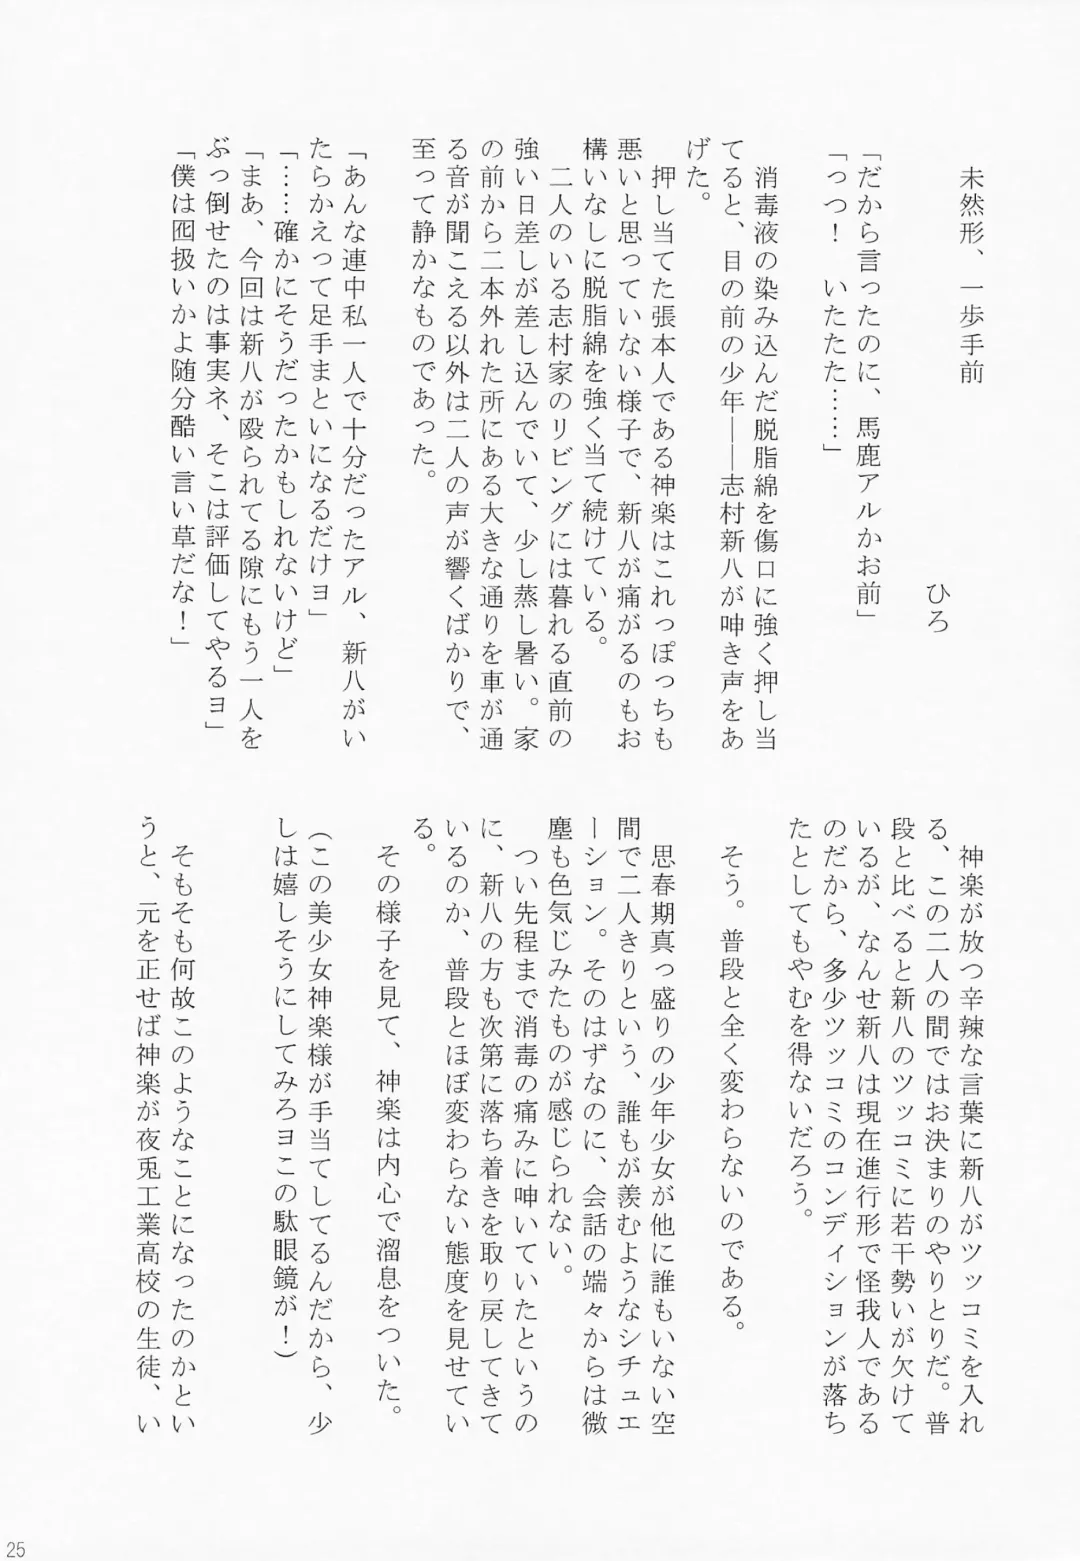 未然形、一歩手前
ひろ
「だから言ったのに、馬鹿アルかお前」
「っつ！　いたたた……」
　消毒液の染み込んだ脱脂綿を傷口に強く押し当
てると、目の前の少年――志村新八が呻き声をあ
げた。
　押し当てた張本人である神楽はこれっぽっちも
悪いと思っていない様子で、新八が痛がるのもお
構いなしに脱脂綿を強く当て続けている。
　二人のいる志村家のリビングには暮れる直前の
強い日差しが差し込んでいて、少し蒸し暑い。家
の前から二本外れた所にある大きな通りを車が通
る音が聞こえる以外は二人の声が響くばかりで、
至って静かなものであった。
「あんな連中私一人で十分だったアル、新八がい
たらかえって足手まといになるだけヨ」
「……確かにそうだったかもしれないけど」
「まあ、今回は新八が殴られてる隙にもう一人を
ぶっ倒せたのは事実ネ、そこは評価してやるヨ」
「僕は囮扱いかよ随分酷い言い草だな！」
　神楽が放つ辛辣な言葉に新八がツッコミを入れ
る、この二人の間ではお決まりのやりとりだ。普
段と比べると新八のツッコミに若干勢いが欠けて
いるが、なんせ新八は現在進行形で怪我人である
のだから、多少ツッコミのコンディションが落ち
たとしてもやむを得ないだろう。
　そう。普段と全く変わらないのである。
　思春期真っ盛りの少年少女が他に誰もいない空
間で二人きりという、誰もが羨むようなシチュエ
ーション。そのはずなのに、会話の端々からは微
塵も色気じみたものが感じられない。
　つい先程まで消毒の痛みに呻いていたというの
に、新八の方も次第に落ち着きを取り戻してきて
いるのか、普段とほぼ変わらない態度を見せてい
る。
　その様子を見て、神楽は内心で溜息をついた。
（この美少女神楽様が手当てしてるんだから、少
しは嬉しそうにしてみろヨこの駄眼鏡が！）
　そもそも何故このようなことになったのかとい
うと、元を正せば神楽が夜兎工業高校の生徒、い
25